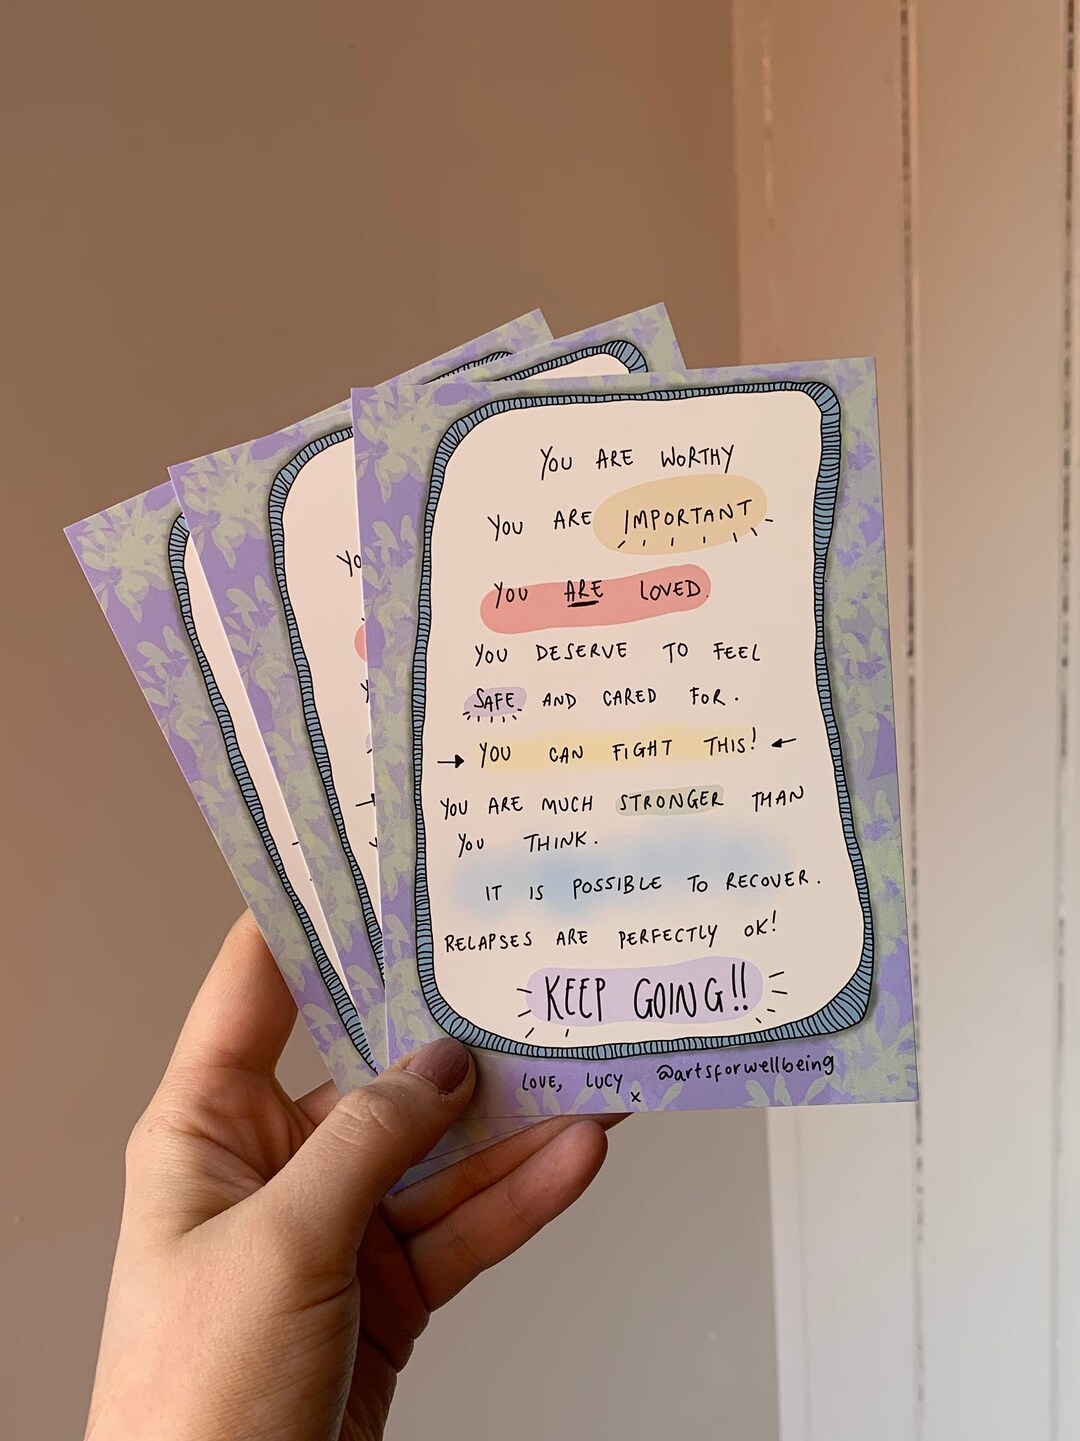 YOU ARE WORTHY
YOU ARE IMPORTANT
YOU ARE LOVED.
YOU DESERVE TO FEEL
SAFE AND CARED FOR.
→ YOU CAN FIGHT THIS! ←
YOU ARE MUCH STRONGER THAN
YOU THINK.
IT IS POSSIBLE TO RECOVER.
RELAPSES ARE PERFECTLY OK!
KEEP GOING!!
LOVE, LUCY @artsforwellbeing
x